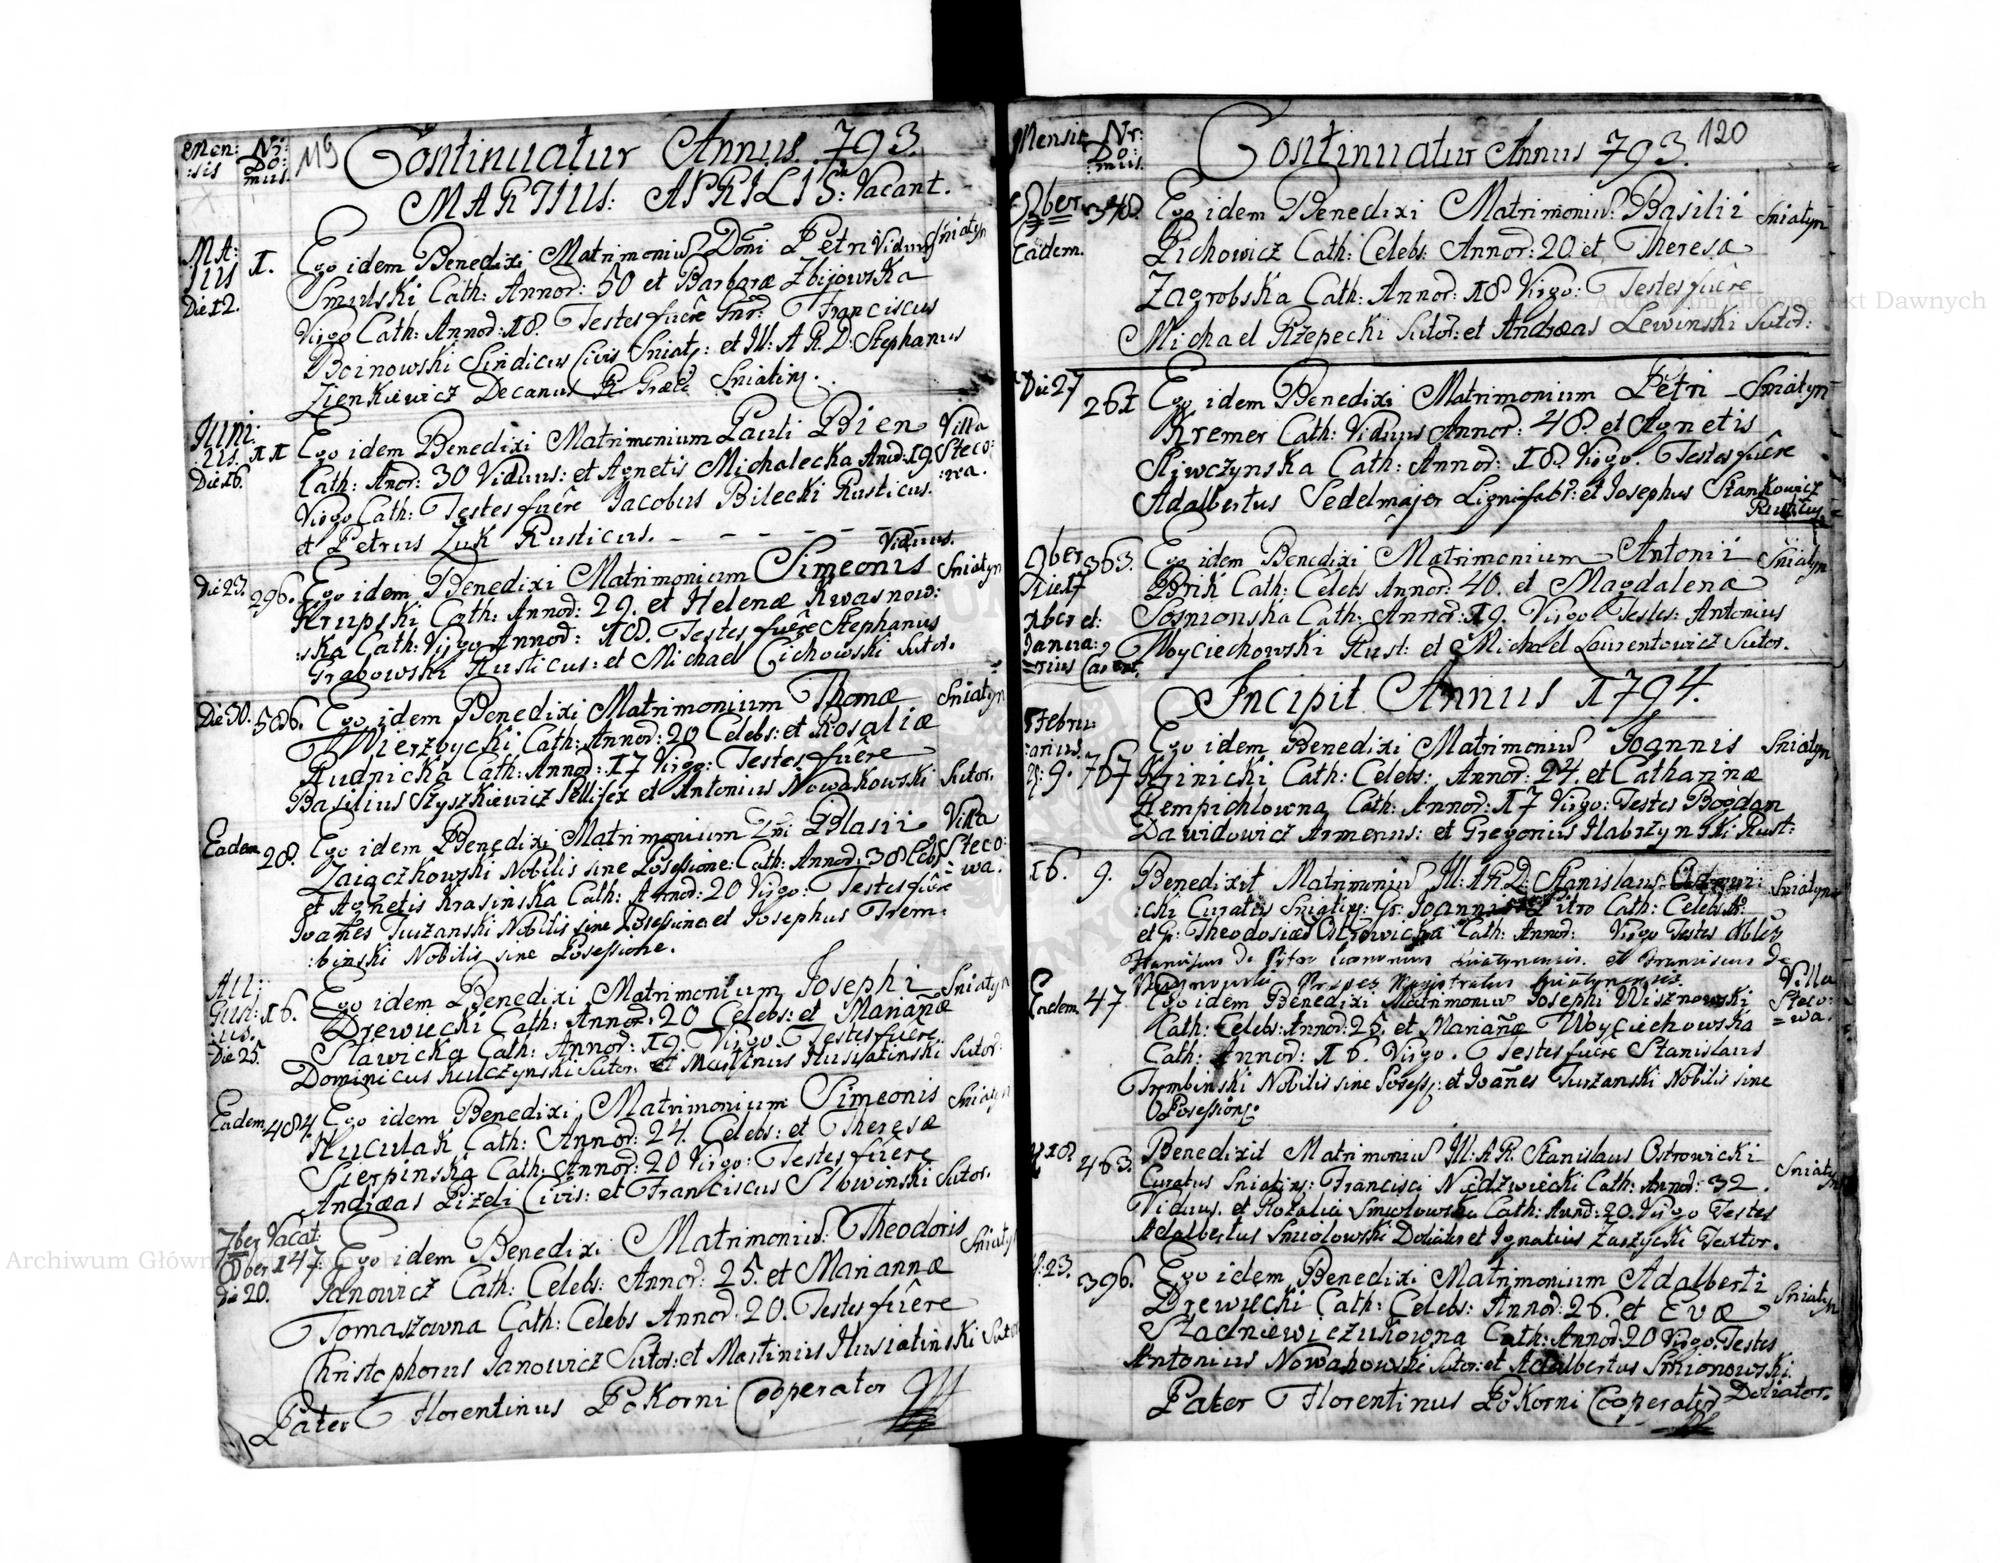 Men:
:sis
Nr:
Do:
mus.
119
Continuatur Annus 793.
MARTIUS: APRILIS: Vacant.
MA:
IUS
Die 12.
1.
Ego idem Benedixi Matrimoniu Dñi Petri Viduus Sniatyn
Smulski Cath: Annor: 50 et Barbaræ Zbijowska
Virgo Cath: Annor: 18. Testes fuêre Gnr: Franciscus
Boinowski Sindicus Civis Sniat: et Ill: A R. D: Stephanus
Zienkiewicz Decanus R. Græc Sniatin.
Iuni:
us.
Die 16.
11
Ego idem Benedixi Matrimonium Pauli Bien Villa
Cath: Anor: 30 Viduus: et Agnetis Michalecka Anor: 19. Steco:
Virgo Cath: Testes fuêre Jacobus Bilecki Rusticus. :wa.
et Petrus Żuk Rusticus. - - - - - -
Viduus.
Die 23. 296. Ego idem Benedixi Matrimonium Simeonis Sniatyn
Krupski Cath: Annor: 29. et Helenæ Kwasnow:
:ska Cath: Virgo Annor: 18. Testes fuêre Stephanus
Grabowski Rusticus: et Michael Cichowski Sutor.
Die 30. 586. Ego idem Benedixi Matrimonium Thomæ Sniatyn
Wierzbycki Cath: Annor: 20 Celebs: et Rosaliæ
Rudnicka Cath: Annor: 17 Virgo: Testes fuêre
Basilius Styszkiewicz Pellifex et Antonius Nowakowski Sutor.
Eadem 28. Ego idem Benedixi Matrimonium Blasii Villa
Zaiączkowski Nobilis sine Posessione: Cath: Annor: 38 Celebs Steco:
et Agnetis Krasinska Cath: Annor: 20 Virgo: Testes fuêre = wa.
Ioañes Turzanski Nobilis sine Posessione: et Josephus Trem:
:binski Nobilis sine Posessione.
Au:
Gust:
:us.
Die 25.
16. Ego idem Benedixi Matrimonium Josephi Sniatyn
Drewiecki Cath: Annor: 20 Celebs: et Mariañæ
Slawicka Cath: Annor: 19. Virgo. Testes fuêre
Dominicus Kulczynski Sutor: et Martinus Husiatinski Sutor:
Eadem 484. Ego idem Benedixi Matrimonium Simeonis Sniatyn
Huculak Cath: Annor: 24. Celebs: et Theresæ
Sierpinska Cath: Annor: 20 Virgo: Testes fuêre
Andræas Pizeli Civis: et Franciscus Slowinski Sutor.
7ber Vacat:
8ber 147.
Die 20.
Ego idem Benedixi Matrimoniu. Theodoris Sniatyn
Janowicz Cath: Celebs: Annor: 25. et Mariannæ
Tomaszowna Cath: Celebs Annor: 20. Testes fuêre
Christophorus Janowicz Sutor: et Martinius Husiatinski Sutor
Pater Florentinus Pokorni Cooperator
Mensis
Nr:
Do:
mus:
Continuatur Annus 793.
120
8ber
Eadem.
348. Ego idem Benedixi Matrimoniu: Basilii Sniatyn
Pichowicz Cath: Celebs: Annor: 20. et Theresæ
Zagrobska Cath: Annor: 18 Virgo: Testes fuêre
Michael Rzepecki Sutor: et Andræas Lewinski Sutor:
Die 27 261 Ego idem Benedixi Matrimonium Petri Sniatyn
Kremer Cath: Viduus Annor: 48. et Agnetis
Slywczynska Cath: Annor: 18. Virgo. Testes fuêre
Adalbertus Sedelmajer Lignifabr: et Josephus Stankowicz
Rusticus.
9ber
Die 17
Xber et:
Janua:
=rius Carent.
363. Ego idem Benedixi Matrimonium Antonii Sniatyn
Brik Cath: Celebs Annor: 40. et Magdalenæ
Sosnionska Cath: Annor: 19. Virgo Testes: Antonius
Woyciechowski Rust: et Michael Laurentowicz Sutor.
Incipit Annus 1794.
Febru:
:arius.
9. 767 Ego idem Benedixi Matrimoniu Joannis Sniatyn
Krinicki Cath: Celebs: Annor: 24. et Catharinæ
Hempichlowna Cath: Annor: 17 Virgo: Testes Bogdan
Dawidowicz Armenus: et Gregorius Habrzynski Rust:
16. 9. Benedixit Matrimoniu Ill: A R. D: Stanislaus Ostrowi: Sniatyn
:cki Curatus Sniatin: Gr: Joannis Pitro Cath: Celebs
et G: Theodosiæ Ostrowicka Cath: Annor: Virgo Testes
Franciscus de Pitro Sniatynensis. et Franciscus de
Magistratus Sniatynensis.
Eadem. 47 Ego idem Benedixi Matrimoniu Josephi Wisznowski Villa
Cath: Celebs: Annor: 25. et Mariañæ Woyciechowska Steco:
Cath: Annor: 16. Virgo. Testes fuêre Stanislaus =wa.
Trembinski Nobilis sine Posess: et Ioañes Turzanski Nobilis sine
Posession:
18. 463. Benedixit Matrimoniu Ill: A R. Stanislaus Ostrowicki
Curatus Sniatin: Francisci Niedzwiecki Cath: Annor: 32. Sniatyn
Viduus. et Rozalia Smiolowska Cath: Annor: 20. Virgo Testes
Adalbertus Smiolowski Doliator et Ignatius Zaszycki Textor.
23. 396. Ego idem Benedixi Matrimonium Adalberti
Drewiecki Cath: Celebs: Annor: 26. et Evæ Sniatyn
Stadniewiczukowna Cath: Annor: 20 Virgo: Testes
Antonius Nowakowski Sutor: et Adalbertus Smionowski
Pater Florentinus Pokorni Cooperator Doliator.
Archiwum Główne Akt Dawnych